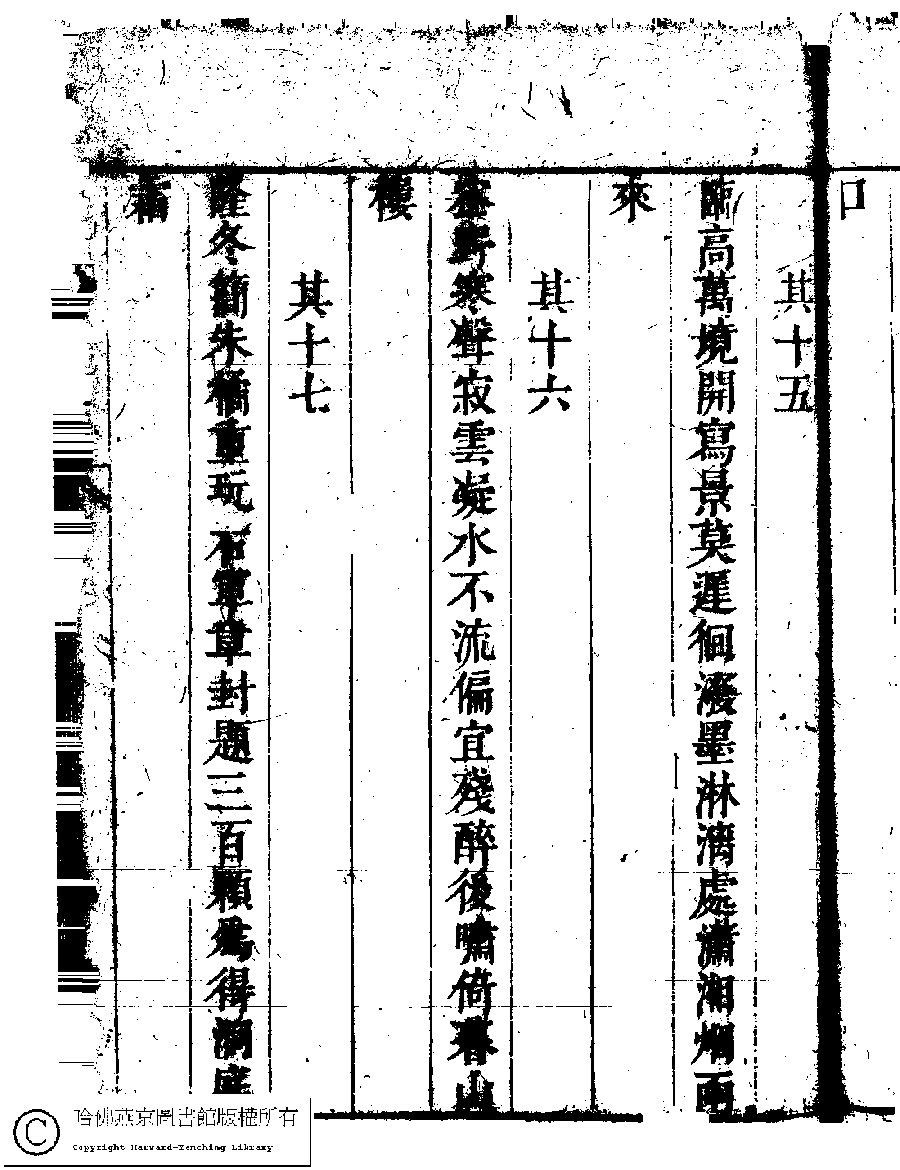 口
其十五
臨高萬境開寫景莫遲徊潑墨淋漓處瀟湘烟雨
來
其十六
野寒聲寂雲凝水不流偏宜殘醉後嘯倚暮山
樓
其十七
隆冬簡朱橘重玩右軍章封題三百顆爲得洞庭
霜
哈佛燕京圖書館版權所有
Copyright Harvard-Yenching Library